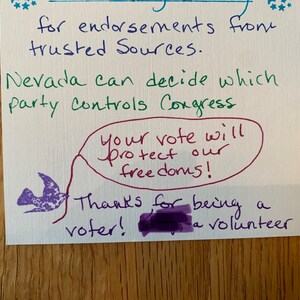 for endorsements from
trusted Sources.
Nevada can decide which
party controls Congress
Your vote will
protect our
freedoms!
Thanks for being a
voter! a volunteer